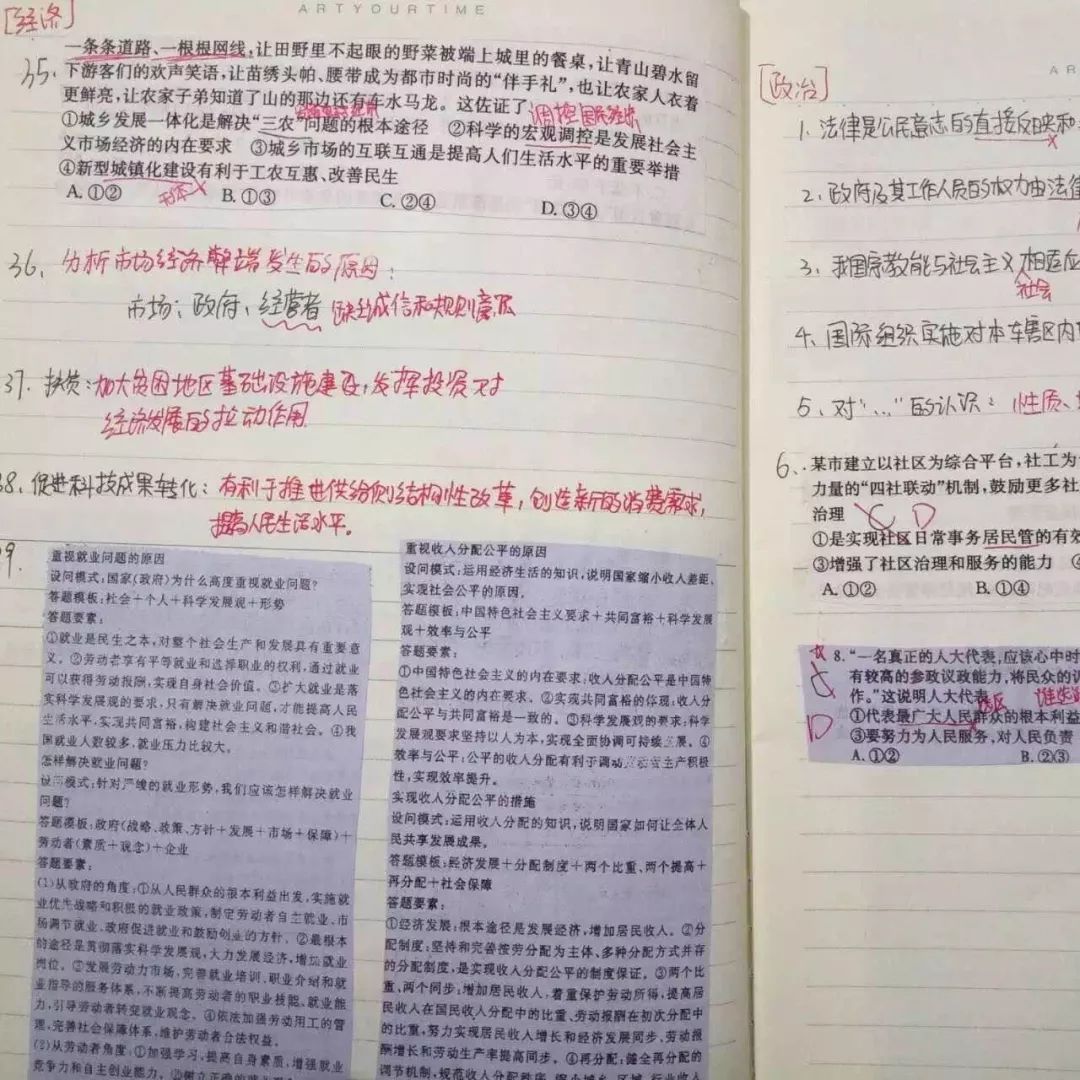 ARTYOURTIME
[经济]
35.
一条条道路、一根根网线,让田野里不起眼的野菜被端上城里的餐桌,让青山碧水留
下游客们的欢声笑语,让苗绣头帕、腰带成为都市时尚的“伴手礼”,也让农家人衣着
更鲜亮,让农家子弟知道了山的那边还有车水马龙。这佐证了
调控国民经济
①城乡发展一体化是解决“三农”问题的根本途径 ②科学的宏观调控是发展社会主
义市场经济的内在要求 ③城乡市场的互联互通是提高人们生活水平的重要举措
④新型城镇化建设有利于工农互惠、改善民生
A.①② B.①③ C.②④ D.③④
36、分析市场经济弊端发生的原因:
市场;政府;经营者缺乏诚信和规则意识
37.扶贫:加大贫困地区基础设施建设,发挥投资对
经济发展的拉动作用
38.促进科技成果转化:有利于推进供给侧结构性改革,创造新的消费需求,
提高人民生活水平。
39.
重视就业问题的原因
设问模式:国家(政府)为什么高度重视就业问题?
答题模板:社会+个人+科学发展观+形势
答题要素:
①就业是民生之本,对整个社会生产和发展具有重要意
义。②劳动者享有平等就业和选择职业的权利,通过就业
可以获得劳动报酬,实现自身社会价值。③扩大就业是落
实科学发展观的要求,只有解决就业问题,才能提高人民
生活水平,实现共同富裕,构建社会主义和谐社会。④我
国就业人数较多,就业压力比较大。
怎样解决就业问题?
设问模式:针对严峻的就业形势,我们应该怎样解决就业
问题?
答题模板:政府(战略、政策、方针+发展+市场+保障)+
劳动者(素质+观念)+企业
答题要素:
(1)从政府的角度:①从人民群众的根本利益出发,实施就
业优先战略和积极的就业政策,制定劳动者自主就业、市
场调节就业、政府促进就业和鼓励创业的方针。②最根本
的途径是贯彻落实科学发展观,大力发展经济,增加就业
岗位。③发展劳动力市场,完善就业培训、职业介绍和就
业指导的服务体系,不断提高劳动者的职业技能、就业能
力,引导劳动者转变就业观念。④依法加强劳动用工的管
理,完善社会保障体系,维护劳动者合法权益。
(2)从劳动者角度:①加强学习,提高自身素质,增强就业
竞争力和自主创业能力。②树立正确的
重视收入分配公平的原因
设问模式:运用经济生活的知识,说明国家缩小收入差距、
实现社会公平的原因。
答题模板:中国特色社会主义要求+共同富裕+科学发展
观+效率与公平
答题要素:
①中国特色社会主义的内在要求,收入分配公平是中国特
色社会主义的内在要求。②实现共同富裕的体现:收入分
配公平与共同富裕是一致的。③科学发展观的要求:科学
发展观要求坚持以人为本,实现全面协调可持续发展。④
效率与公平:公平的收入分配有利于调动劳动者生产积极
性,实现效率提升。
实现收入分配公平的措施
设问模式:运用收入分配的知识,说明国家如何让全体人
民共享发展成果。
答题模板:经济发展+分配制度+两个比重、两个提高+
再分配+社会保障
答题要素:
①经济发展:根本途径是发展经济,增加居民收入。②分
配制度:坚持和完善按劳分配为主体、多种分配方式并存
的分配制度,是实现收入分配公平的制度保证。③两个比
重、两个同步:增加居民收入,着重保护劳动所得,提高居
民收入在国民收入分配中的比重、劳动报酬在初次分配中
的比重,努力实现居民收入增长和经济发展同步、劳动报
酬增长和劳动生产率提高同步。④再分配:健全再分配的
调节机制,规范收入分配秩序,缩小城乡、区域、行业收入
AR
[政治]
1.法律是公民意志的直接反映和
2.政府及其工作人员的权力由法律
3.我国宗教能与社会主义相适应
社会
4.国际组织实施对本辖区内
5.对“…”的认识:性质、
6.
某市建立以社区为综合平台,社工为
力量的“四社联动”机制,鼓励更多社
治理 C D
①是实现社区日常事务居民管的有效
③增强了社区治理和服务的能力
A.①② B.①④
8.“一名真正的人大代表,应该心中时
有较高的参政议政能力,将民众的
作。”这说明人大代表
选区
①代表最广大人民群众的根本利益
③要努力为人民服务,对人民负责
A.①② B.②③
D